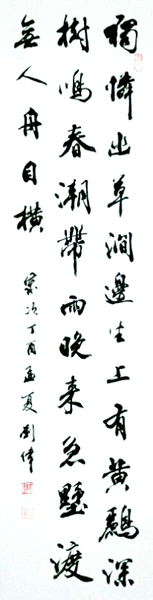 獨憐幽草澗邊生上有黃鸝深
樹鳴春潮帶雨晚来急野渡
無人舟自橫
歲次丁酉孟夏劉偉